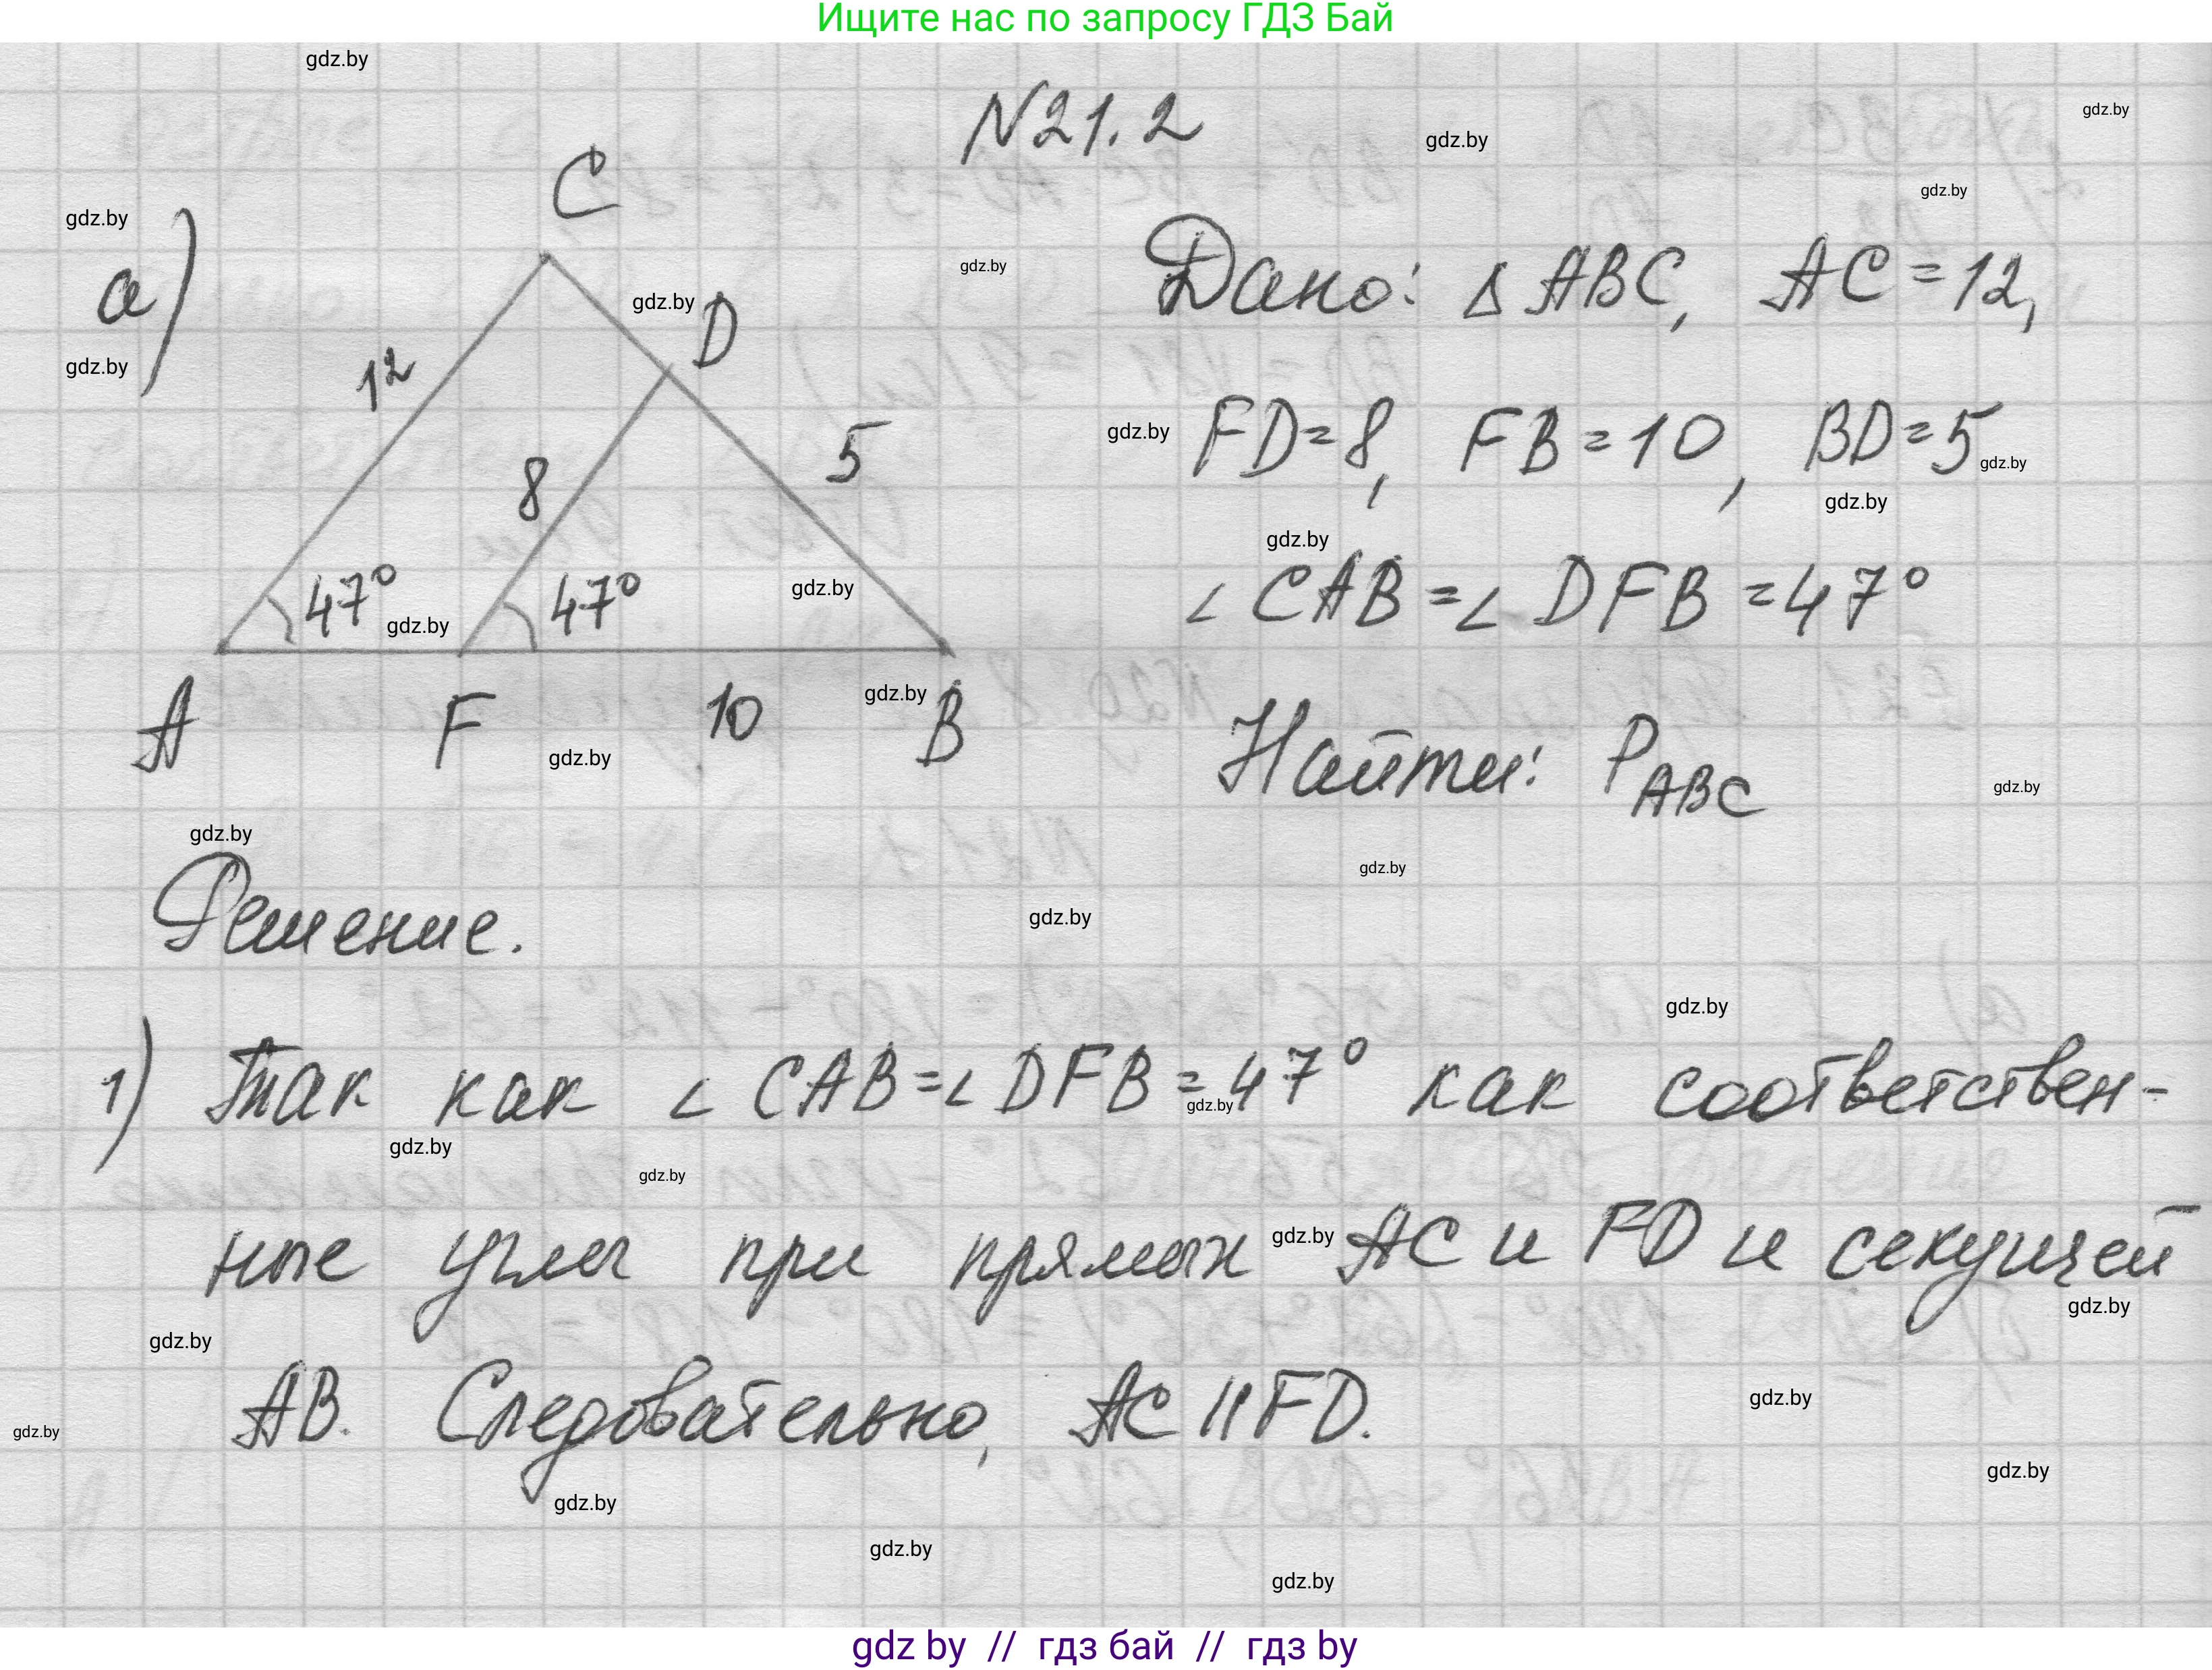 Ищите нас по запросу ГДЗ Бай
gdz.by
N21.2
gdz.by
gdz.by
gdz.by
C
gdz.by
а)
gdz.by
gdz.by
D
Дано: Δ ABC, AC = 12,
12
gdz.by
5
gdz.by
FD = 8, FB = 10, BD = 5
gdz.by
8
gdz.by
gdz.by
47°
gdz.by
47°
gdz.by
∠ CAB = ∠ DFB = 47°
A
F
10
gdz.by
B
gdz.by
Найти: P ABC
gdz.by
gdz.by
gdz.by
Решение.
gdz.by
gdz.by
1) Так как ∠ CAB = ∠ DFB = 47° как соответствен-
gdz.by
gdz.by
gdz.by
ные углы при прямых AC и FD и секущей
gdz.by
gdz.by
gdz.by
AB. Следовательно, AC || FD.
gdz.by
gdz.by
gdz.by
gdz.by
gdz.by
gdz.by
gdz by // гдз бай // гдз by